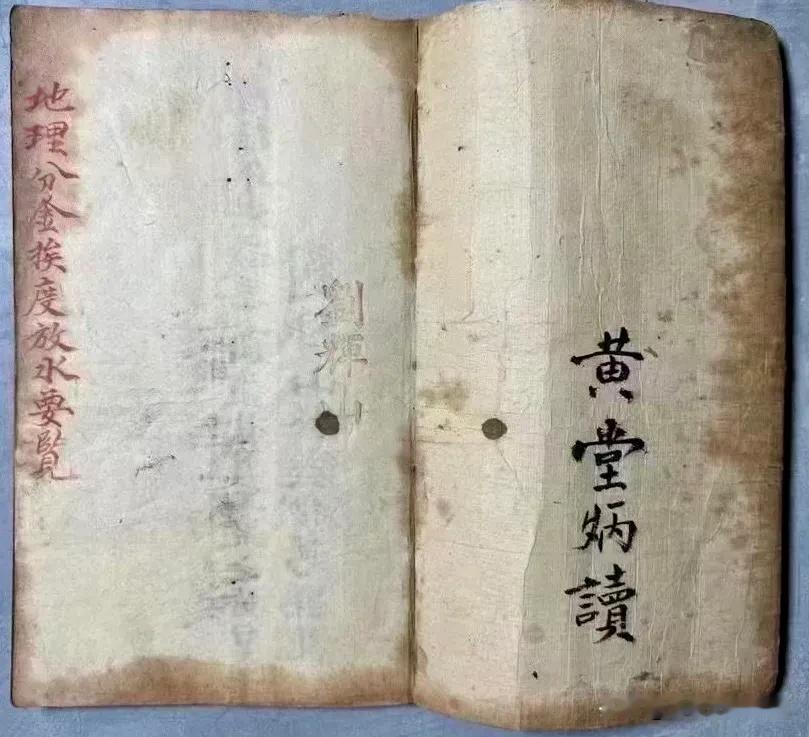 黄堂炳讀
劉輝山
地理分金挨度放水要覧